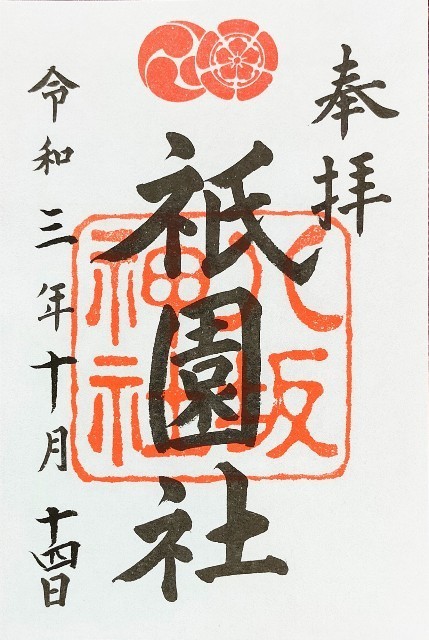 奉拝
祇園社
八坂
神社
令和三年十月十四日